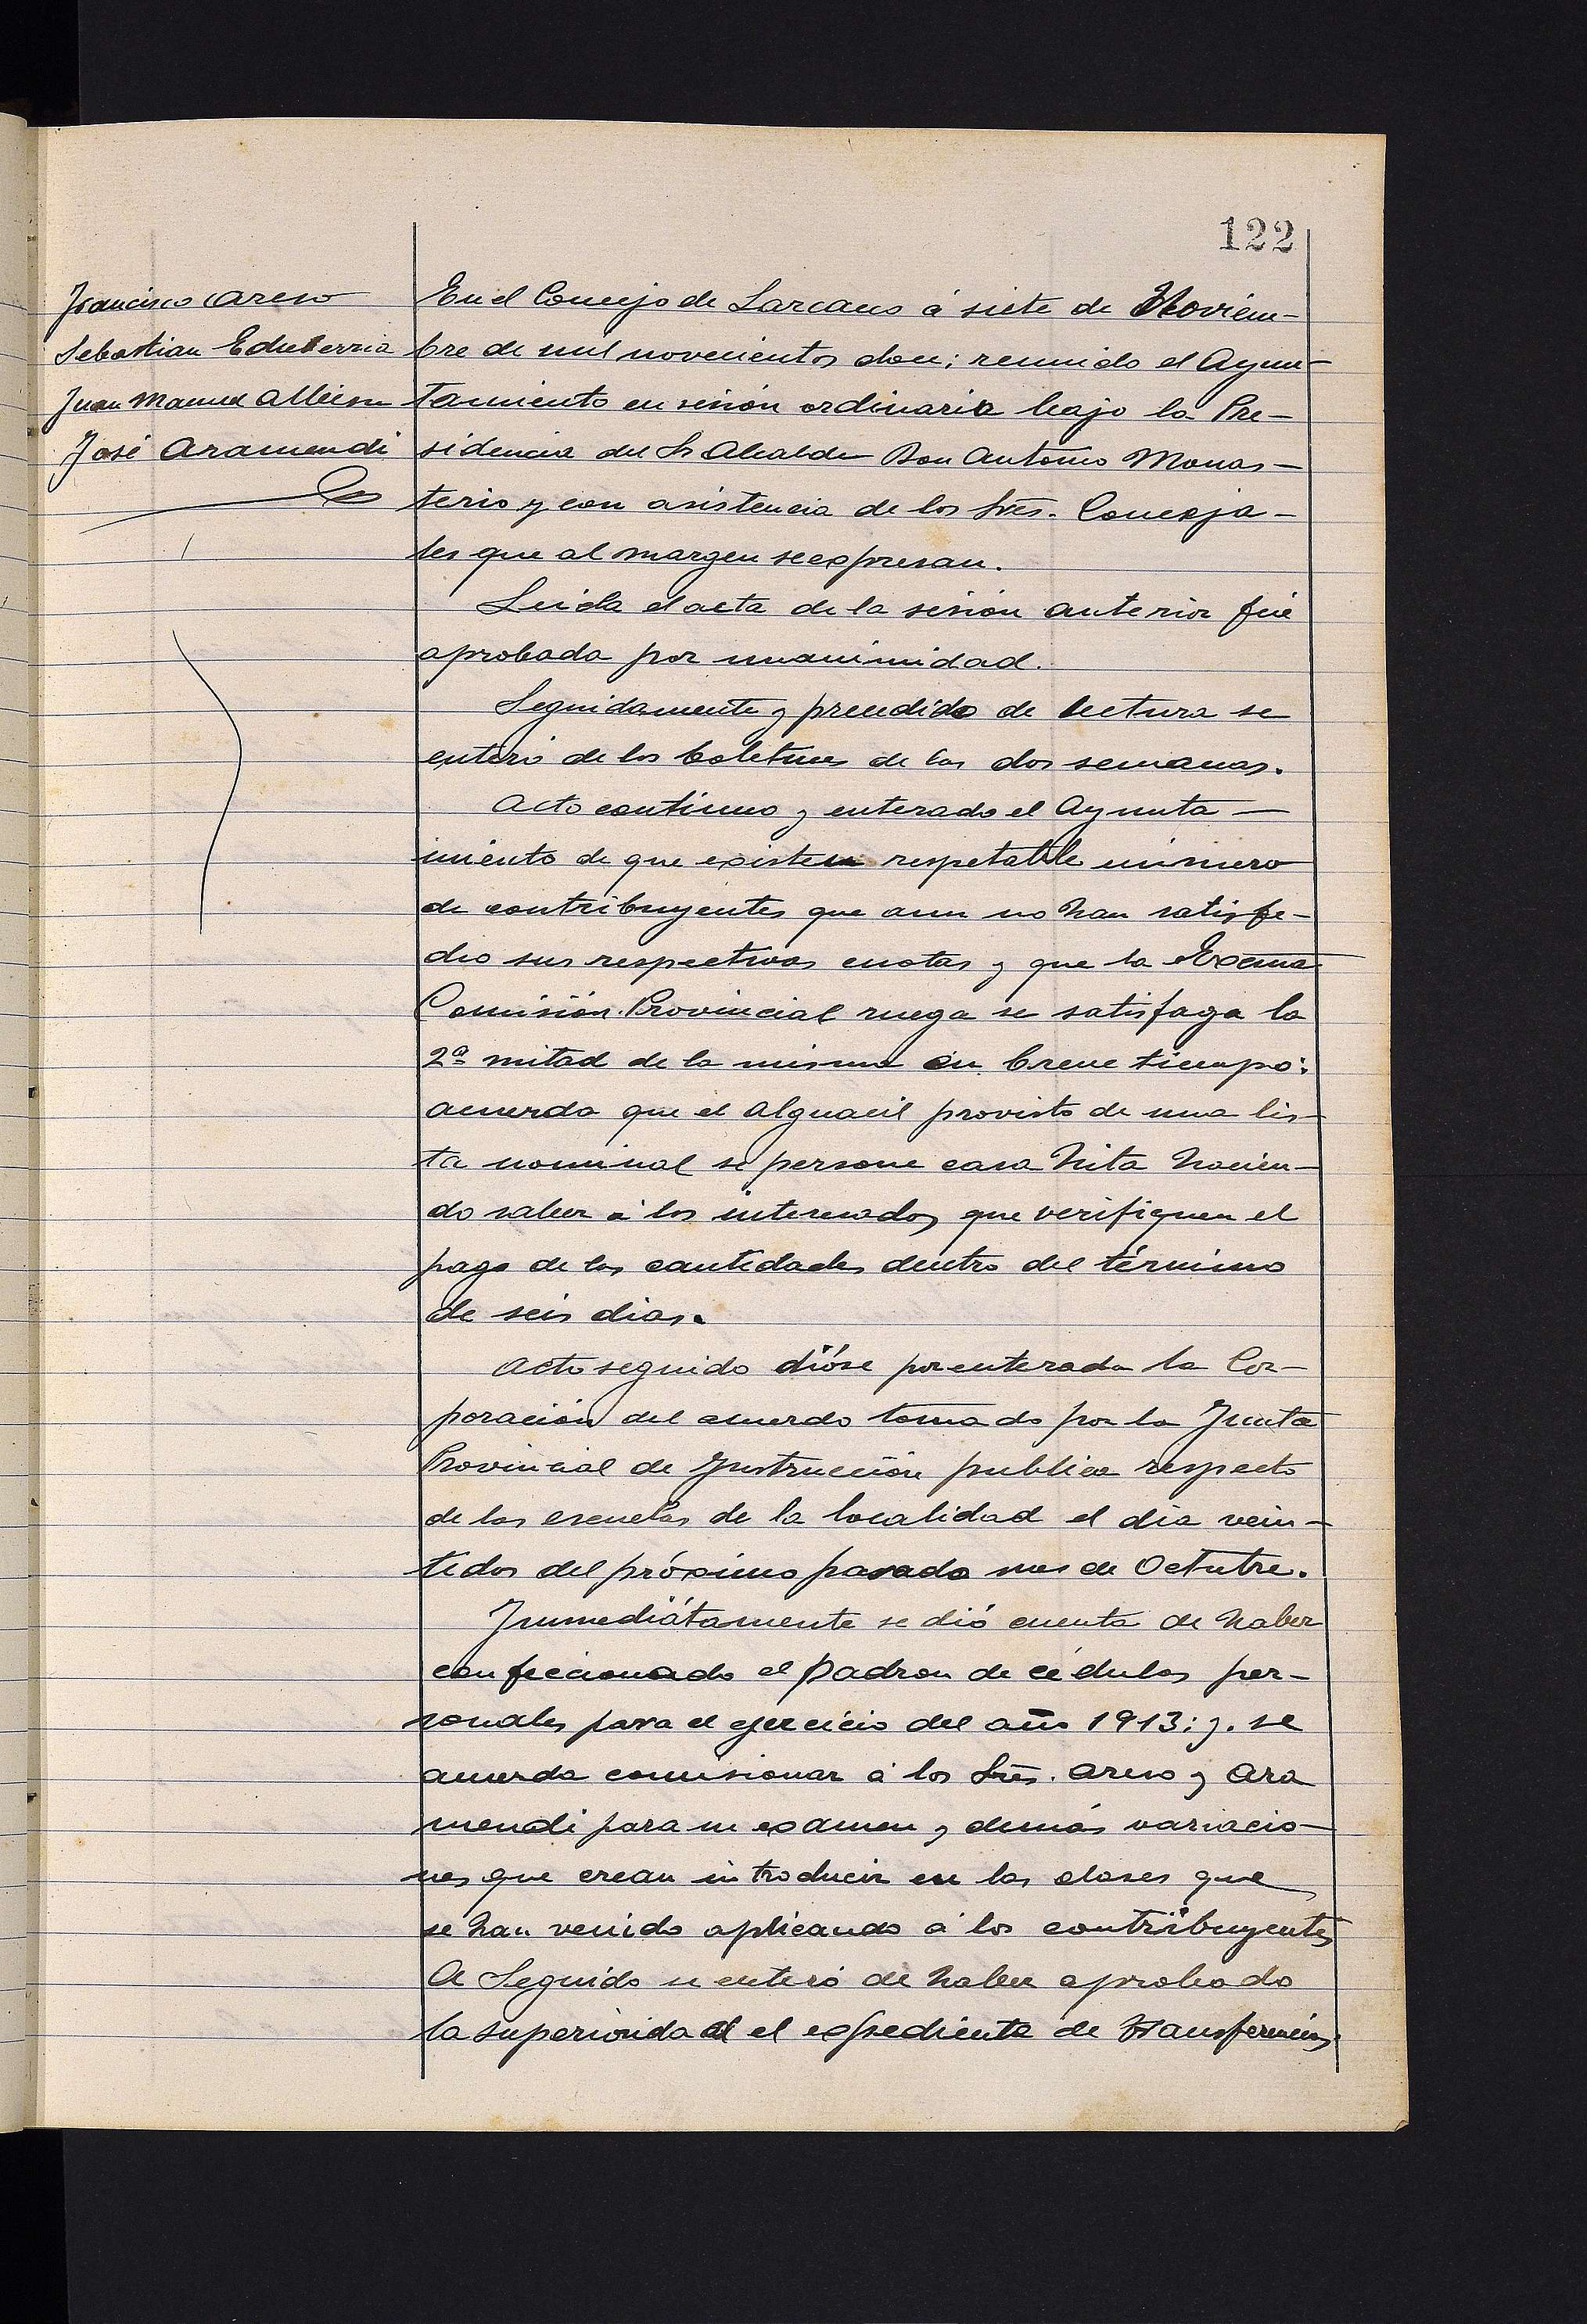 122
Francisco Areso
Sebastian Echeberria
Juan Manuel
José Aramendi
En el Concejo de Larcano á siete de Noviem-
bre de mil novecientos doce; reunido el Ayun-
tamiento en sesión ordinaria bajo la Pre-
sidencia del Sr Alcalde Don Antonio Monas-
terio y con asistencia de los Sres. Conceja-
les que al margen se expresan.
Leida el acta de la sesión anterior fué
aprobada por unanimidad.
Seguidamente y precedido de lectura se
enteró de los boletines de las dos semanas.
Acto continuo y enterado el Ayunta-
miento de que existen respetable número
de contribuyentes que aun no han satisfe-
cho sus respectivas cuotas y que la Excma
Comisión Provincial ruega se satisfaga la
2ª mitad de la misma en breve tiempo:
acuerda que el Alguacil provisto de una lis-
ta nominal se persone casa hita hacien-
do saber á los interesados que verifiquen el
pago de las cantidades dentro del término
de seis dias.
Acto seguido dióse por enterada la Cor-
poración del acuerdo tomado por la Junta
Provincial de Instrucción publica respecto
de las escuelas de la localidad el dia vein-
tidos del próximo pasado mes de Octubre.
Inmediátamente se dió cuenta de haber
confeccionado el padron de cédulas per-
sonales para el ejercicio del año 1913; y. se
acuerda comisionar á los Sres. Areso y Ara
mendi para su examen y demás variacio-
nes que crean introducir en las clases que
se han venido aplicando á los contribuyentes
A Seguido se enteró de haber aprobado
la superioridad el expediente de transferencias